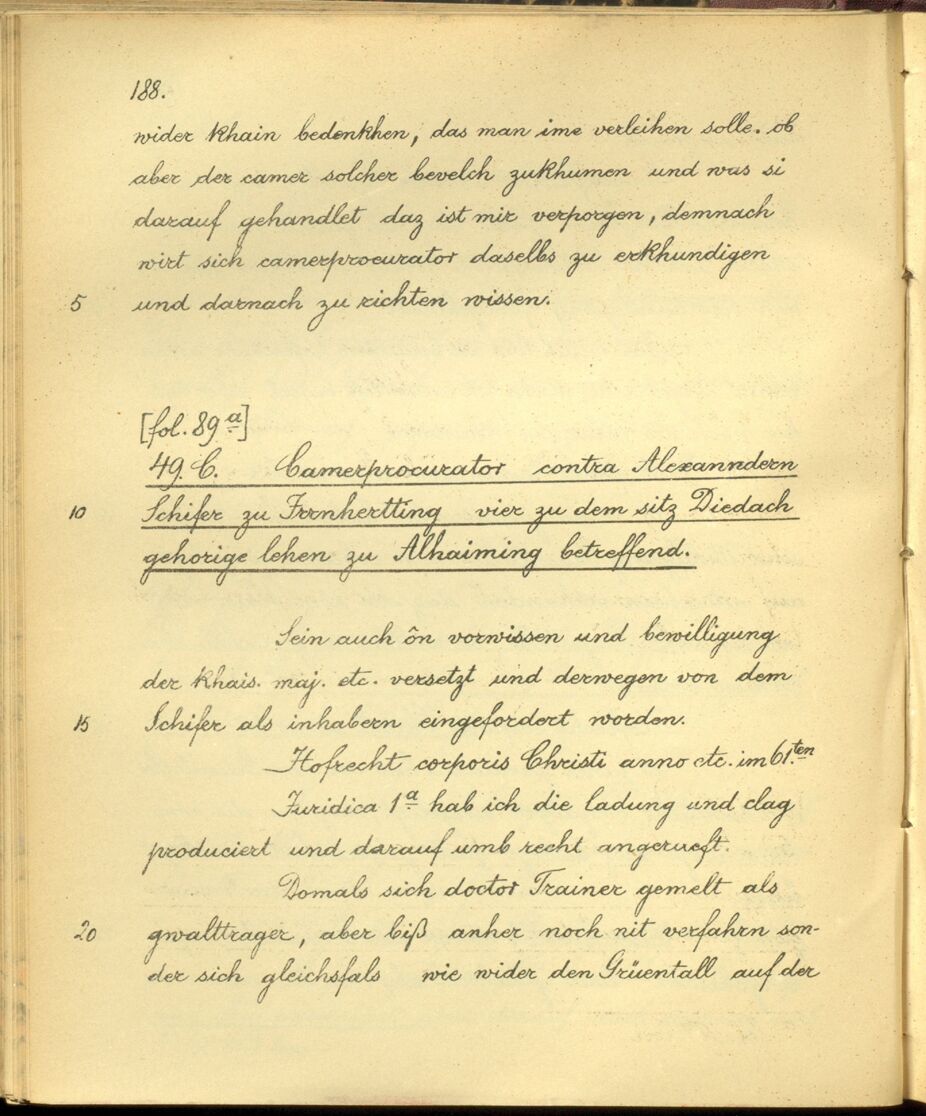 188.
wider khain bedenkhen, das man ime verleihen solle. ob
aber der camer solcher bevelch zukhumen und was si
darauf gehandlet daz ist mir verporgen, demnach
wirt sich camerprocurator daselbs zu erkhundigen
5 und darnach zu richten wissen.
[fol. 89a]
49. C. Camerprocurator contra Alexanndern
10 Schifer zu Irrnhertting vier zu dem sitz Diedach
gehorige lehen zu Alhaiming betreffend.
Sein auch ôn vorwissen und bewilligung
der khais. maj. etc. versetzt und derwegen von dem
15 Schifer als inhabern eingefordert worden.
Hofrecht corporis Christi anno etc. im 61.ten
Juridica 1a hab ich die ladung und clag
produciert und darauf umb recht angerueft.
Domals sich doctor Trainer gemelt als
20 gwalttrager, aber biß anher noch nit verfahrn son-
der sich gleichsfals wie wider den Grüentall auf der